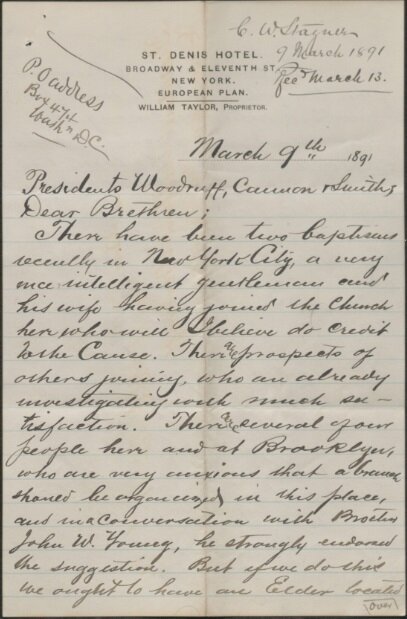 C. W. Stayner
9 March 1891
Recd March 13.
ST. DENIS HOTEL.
BROADWAY & ELEVENTH ST.
NEW YORK.
EUROPEAN PLAN.
WILLIAM TAYLOR, PROPRIETOR.
P.O address
Box 474
Wash'n D.C.
March 9th 1891
Presidents Woodruff, Cannon & Smith;
Dear Brethren;
There have been two baptisms
recently in New York City, a very
nice intelligent gentleman and
his wife having joined the Church
here who will I believe do credit
to the Cause. There are prospects of
others joining, who are already
investigating with much sa-
tisfaction. There are several of our
people here and at Brooklyn,
who are very anxious that a branch
should be organized in this place,
and in a conversation with Brother
John W. Young, he strongly endorsed
the suggestion. But if we do this
we ought to have an Elder located
(over)